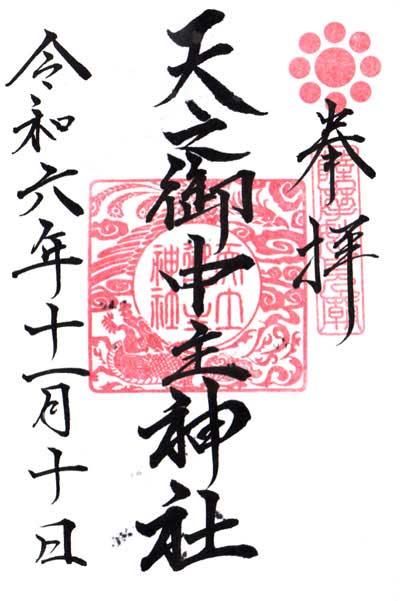 奉拝
天之御中主神社
令和六年十一月十日